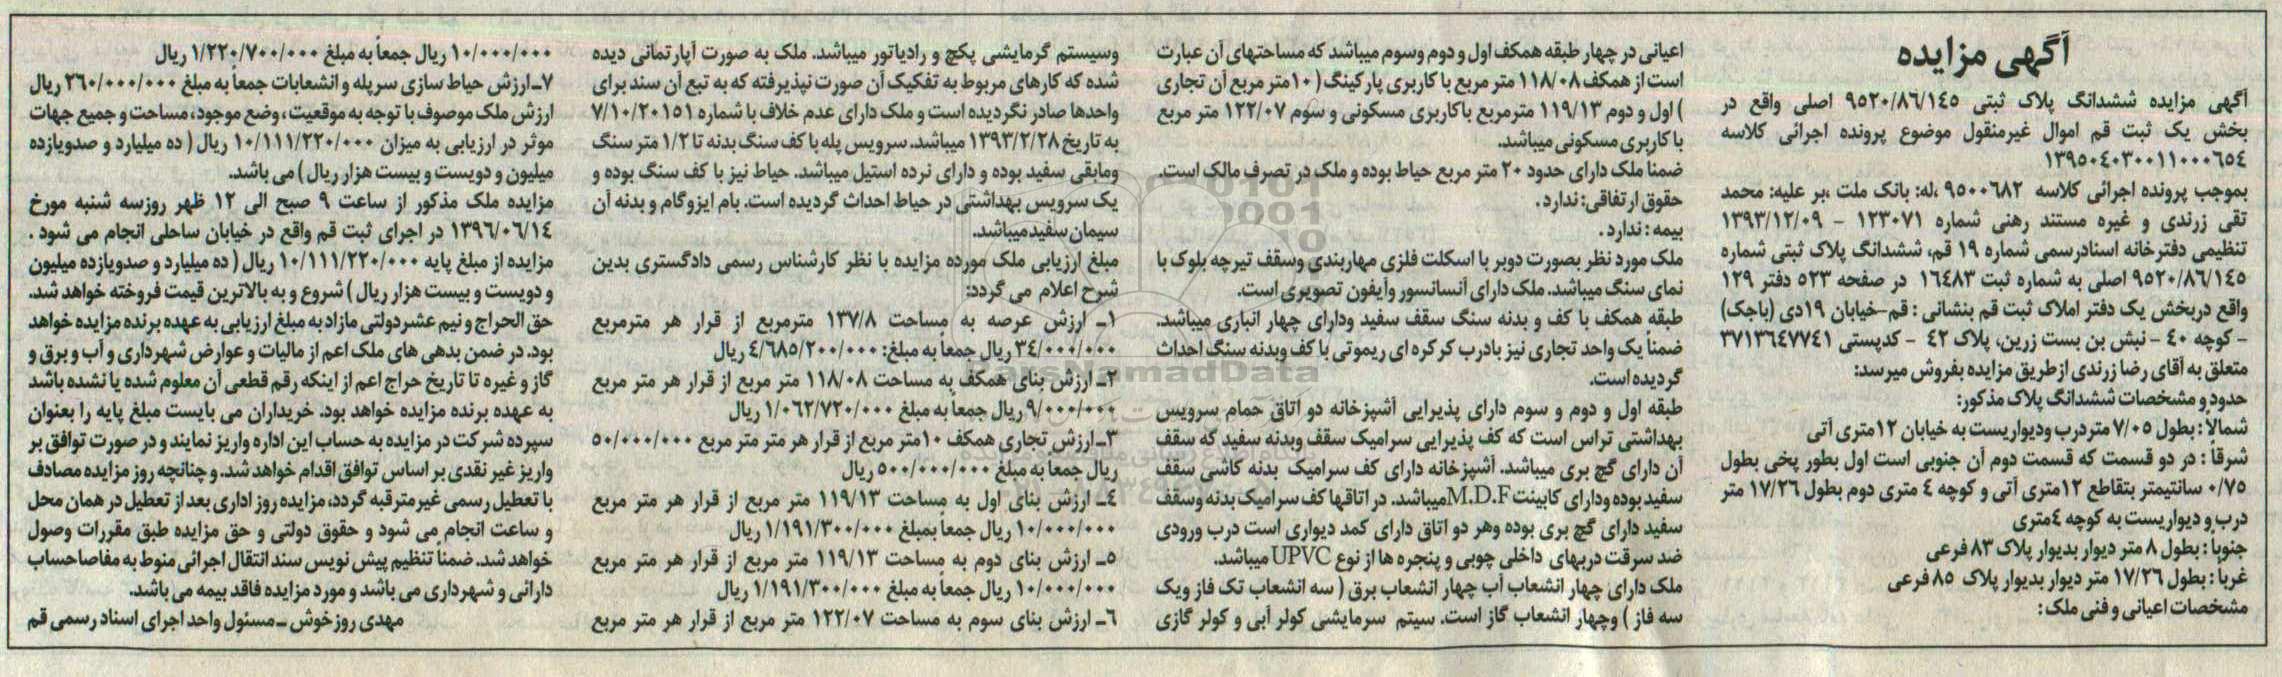 آگهی مزایده
آگهی مزایده ششدانگ پلاک ثبتی ۹۵۲۰/۸۶/۱۴۵ اصلی واقع در
بخش یک ثبت قم اموال غیرمنقول موضوع پرونده اجرائی کلاسه
۱۳۹۵۰۴۰۳۰۰۱۱۰۰۰۶۵۴
بموجب پرونده اجرائی کلاسه ۹۵۰۰۶۸۲ ،له: بانک ملت ،بر علیه: محمد
تقی زرندی و غیره مستند رهنی شماره ۱۲۳۰۷۱ - ۱۳۹۳/۱۲/۰۹
تنظیمی دفترخانه اسنادرسمی شماره ۱۹ قم، ششدانگ پلاک ثبتی شماره
۹۵۲۰/۸۶/۱۴۵ اصلی به شماره ثبت ۱۶۴۸۳ در صفحه ۵۲۳ دفتر ۱۲۹
واقع دربخش یک دفتر املاک ثبت قم بنشانی : قم-خیابان ۱۹دی (باجک)
- کوچه ۴۰ - نبش بن بست زرین، پلاک ۴۲ - کدپستی ۳۷۱۳۶۴۷۷۴۱
متعلق به آقای رضا زرندی ازطریق مزایده بفروش میرسد:
حدود و مشخصات ششدانگ پلاک مذکور:
شمالاً : بطول ۷/۰۵ متردرب ودیواریست به خیابان ۱۲متری آتی
شرقاً : در دو قسمت که قسمت دوم آن جنوبی است اول بطور پخی بطول
۰/۷۵ سانتیمتر بتقاطع ۱۲متری آتی و کوچه ۴ متری دوم بطول ۱۷/۲۶ متر
درب و دیواریست به کوچه ۴متری
جنوباً : بطول ۸ متر دیوار بدیوار پلاک ۸۳ فرعی
غرباً : بطول ۱۷/۲۶ متر دیوار بدیوار پلاک ۸۵ فرعی
مشخصات اعیانی و فنی ملک :
اعیانی در چهار طبقه همکف اول و دوم وسوم میباشد که مساحتهای آن عبارت
است از همکف ۱۱۸/۰۸ متر مربع با کاربری پارکینگ ( ۱۰متر مربع آن تجاری
) اول و دوم ۱۱۹/۱۳ مترمربع باکاربری مسکونی و سوم ۱۲۲/۰۷ متر مربع
با کاربری مسکونی میباشد.
ضمنا ملک دارای حدود ۲۰ متر مربع حیاط بوده و ملک در تصرف مالک است.
حقوق ارتفاقی: ندارد .
بیمه : ندارد .
ملک مورد نظر بصورت دوبر با اسکلت فلزی مهاربندی وسقف تیرچه بلوک با
نمای سنگ میباشد. ملک دارای آسانسور وآیفون تصویری است.
طبقه همکف با کف و بدنه سنگ سقف سفید ودارای چهار انباری میباشد.
ضمناً یک واحد تجاری نیز بادرب کرکره ای ریموتی با کف وبدنه سنگ احداث
گردیده است.
طبقه اول و دوم و سوم دارای پذیرایی آشپزخانه دو اتاق حمام سرویس
بهداشتی تراس است که کف پذیرایی سرامیک سقف وبدنه سفید که سقف
آن دارای گچ بری میباشد. آشپزخانه دارای کف سرامیک بدنه کاشی سقف
سفید بوده ودارای کابینت M.D.F میباشد. در اتاقها کف سرامیک بدنه وسقف
سفید دارای گچ بری بوده وهر دو اتاق دارای کمد دیواری است درب ورودی
ضد سرقت دربهای داخلی چوبی و پنجره ها از نوع UPVC میباشد.
ملک دارای چهار انشعاب آب چهار انشعاب برق ( سه انشعاب تک فاز ویک
سه فاز ) وچهار انشعاب گاز است. سیتم سرمایشی کولر آبی و کولر گازی
وسیستم گرمایشی پکچ و رادیاتور میباشد. ملک به صورت آپارتمانی دیده
شده که کارهای مربوط به تفکیک آن صورت نپذیرفته که به تبع آن سند برای
واحدها صادر نگردیده است و ملک دارای عدم خلاف با شماره ۷/۱۰/۲۰۱۵۱
به تاریخ ۱۳۹۳/۲/۲۸ میباشد. سرویس پله با کف سنگ بدنه تا ۱/۲ متر سنگ
ومابقی سفید بوده و دارای نرده استیل میباشد. حیاط نیز با کف سنگ بوده و
یک سرویس بهداشتی در حیاط احداث گردیده است. بام ایزوگام و بدنه آن
سیمان سفیدمیباشد.
مبلغ ارزیابی ملک مورده مزایده با نظر کارشناس رسمی دادگستری بدین
شرح اعلام می گردد:
۱ـ ارزش عرصه به مساحت ۱۳۷/۸ مترمربع از قرار هر مترمربع
۳۴/۰۰۰/۰۰۰ ریال جمعاً به مبلغ: ۴/۶۸۵/۲۰۰/۰۰۰ ریال
۲ـ ارزش بنای همکف به مساحت ۱۱۸/۰۸ متر مربع از قرار هر متر مربع
۹/۰۰۰/۰۰۰ ریال جمعاً به مبلغ ۱/۰۶۲/۷۲۰/۰۰۰ ریال
۳ـ ارزش تجاری همکف ۱۰متر مربع از قرار هر متر متر مربع ۵۰/۰۰۰/۰۰۰
ریال جمعاً به مبلغ ۵۰۰/۰۰۰/۰۰۰ ریال
۴ـ ارزش بنای اول به مساحت ۱۱۹/۱۳ متر مربع از قرار هر متر مربع
۱۰/۰۰۰/۰۰۰ ریال جمعاً بمبلغ ۱/۱۹۱/۳۰۰/۰۰۰ ریال
۵ـ ارزش بنای دوم به مساحت ۱۱۹/۱۳ متر مربع از قرار هر متر مربع
۱۰/۰۰۰/۰۰۰ ریال جمعاً به مبلغ ۱/۱۹۱/۳۰۰/۰۰۰ ریال
۶ـ ارزش بنای سوم به مساحت ۱۲۲/۰۷ متر مربع از قرار هر متر مربع
۱۰/۰۰۰/۰۰۰ ریال جمعاً به مبلغ ۱/۲۲۰/۷۰۰/۰۰۰ ریال
۷ـ ارزش حیاط سازی سرپله و انشعابات جمعاً به مبلغ ۲۶۰/۰۰۰/۰۰۰ ریال
ارزش ملک موصوف با توجه به موقعیت ، وضع موجود، مساحت و جمیع جهات
موثر در ارزیابی به میزان ۱۰/۱۱۱/۲۲۰/۰۰۰ ریال ( ده میلیارد و صدویازده
میلیون و دویست و بیست هزار ریال ) می باشد.
مزایده ملک مذکور از ساعت ۹ صبح الی ۱۲ ظهر روزسه شنبه مورخ
۱۳۹۶/۰۶/۱۴ در اجرای ثبت قم واقع در خیابان ساحلی انجام می شود .
مزایده از مبلغ پایه ۱۰/۱۱۱/۲۲۰/۰۰۰ ریال ( ده میلیارد و صدویازده میلیون
و دویست و بیست هزار ریال ) شروع و به بالاترین قیمت فروخته خواهد شد.
حق الحراج و نیم عشر دولتی مازاد به مبلغ ارزیابی به عهده برنده مزایده خواهد
بود. در ضمن بدهی های ملک اعم از مالیات و عوارض شهرداری و آب و برق و
گاز و غیره تا تاریخ حراج اعم از اینکه رقم قطعی آن معلوم شده یا نشده باشد
به عهده برنده مزایده خواهد بود. خریداران می بایست مبلغ پایه را بعنوان
سپرده شرکت در مزایده به حساب این اداره واریز نمایند و در صورت توافق بر
واریز غیر نقدی بر اساس توافق اقدام خواهد شد. و چنانچه روز مزایده مصادف
با تعطیل رسمی غیرمترقبه گردد، مزایده روز اداری بعد از تعطیل در همان محل
و ساعت انجام می شود و حقوق دولتی و حق مزایده طبق مقررات وصول
خواهد شد. ضمناً تنظیم پیش نویس سند انتقال اجرائی منوط به مفاصاحساب
دارائی و شهرداری می باشد و مورد مزایده فاقد بیمه می باشد.
مهدی روزخوش ـ مسئول واحد اجرای اسناد رسمی قم
ParsNamadData